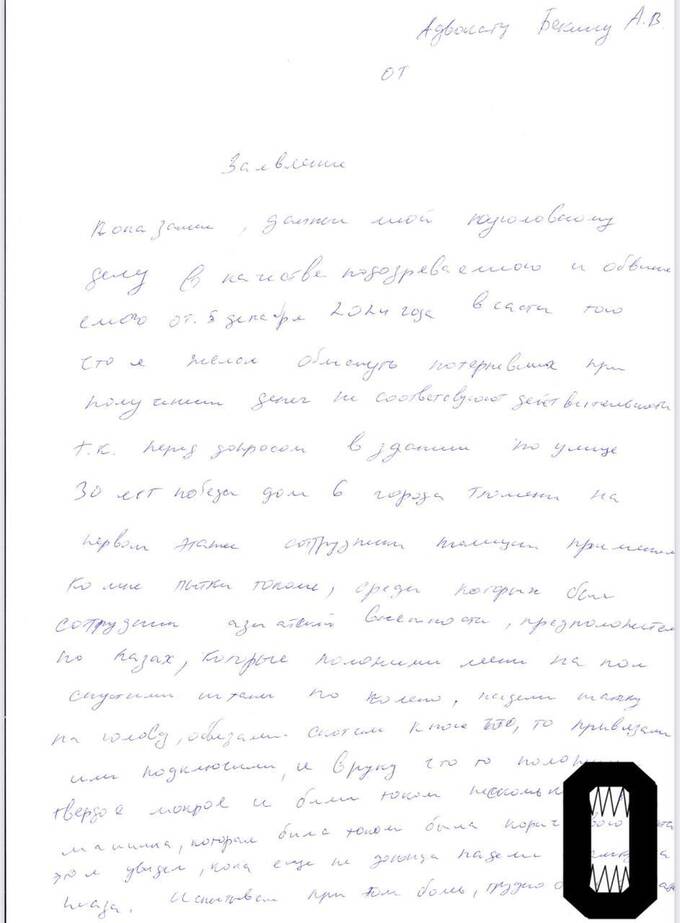 Адвокату Бекину А.В
от
Заявление
Показание, данные мной по уголовному
делу в качестве подозреваемого и обвиня
емого от 5 декабря 2024 года в части того
что я желал обмануть потерпевших при
получении денег не соответствуют действительности
т.к. перед допросом в здании по улице
30 лет победы дом 6 города Тюмени на
первом этаже сотрудники полиции применял
ко мне пытки током, среди которых был
сотрудник азиатской внешности, предположител
но казах, которые положили меня на пол
спустили штаны по колено, надели шапку
на голову, обвязали скотчем к ноге что, то привязали
или подключили, и в руку что то положили
твердое мокрое и били током
машинка, которая била током была
этом увидел, пока еще не надели
глаза. Испытывал при этом боль, трудно